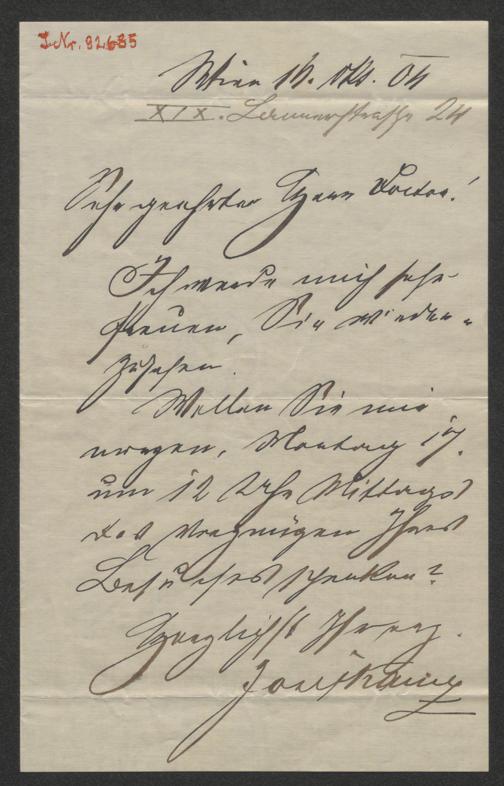 I. Nr. 82685
Wien 16. Okt. 04
XIX. Lannerstrasse 24
Sehr geehrter Herr Doctor!
Ich werde mich sehr
freuen, Sie wieder-
zusehen.
Wollen Sie mir
morgen, Montag 17.
um 12 Uhr Mittags
das Vergnügen Ihres
Besuches schenken?
Herzlichst Ihr erg.
Josef Kainz